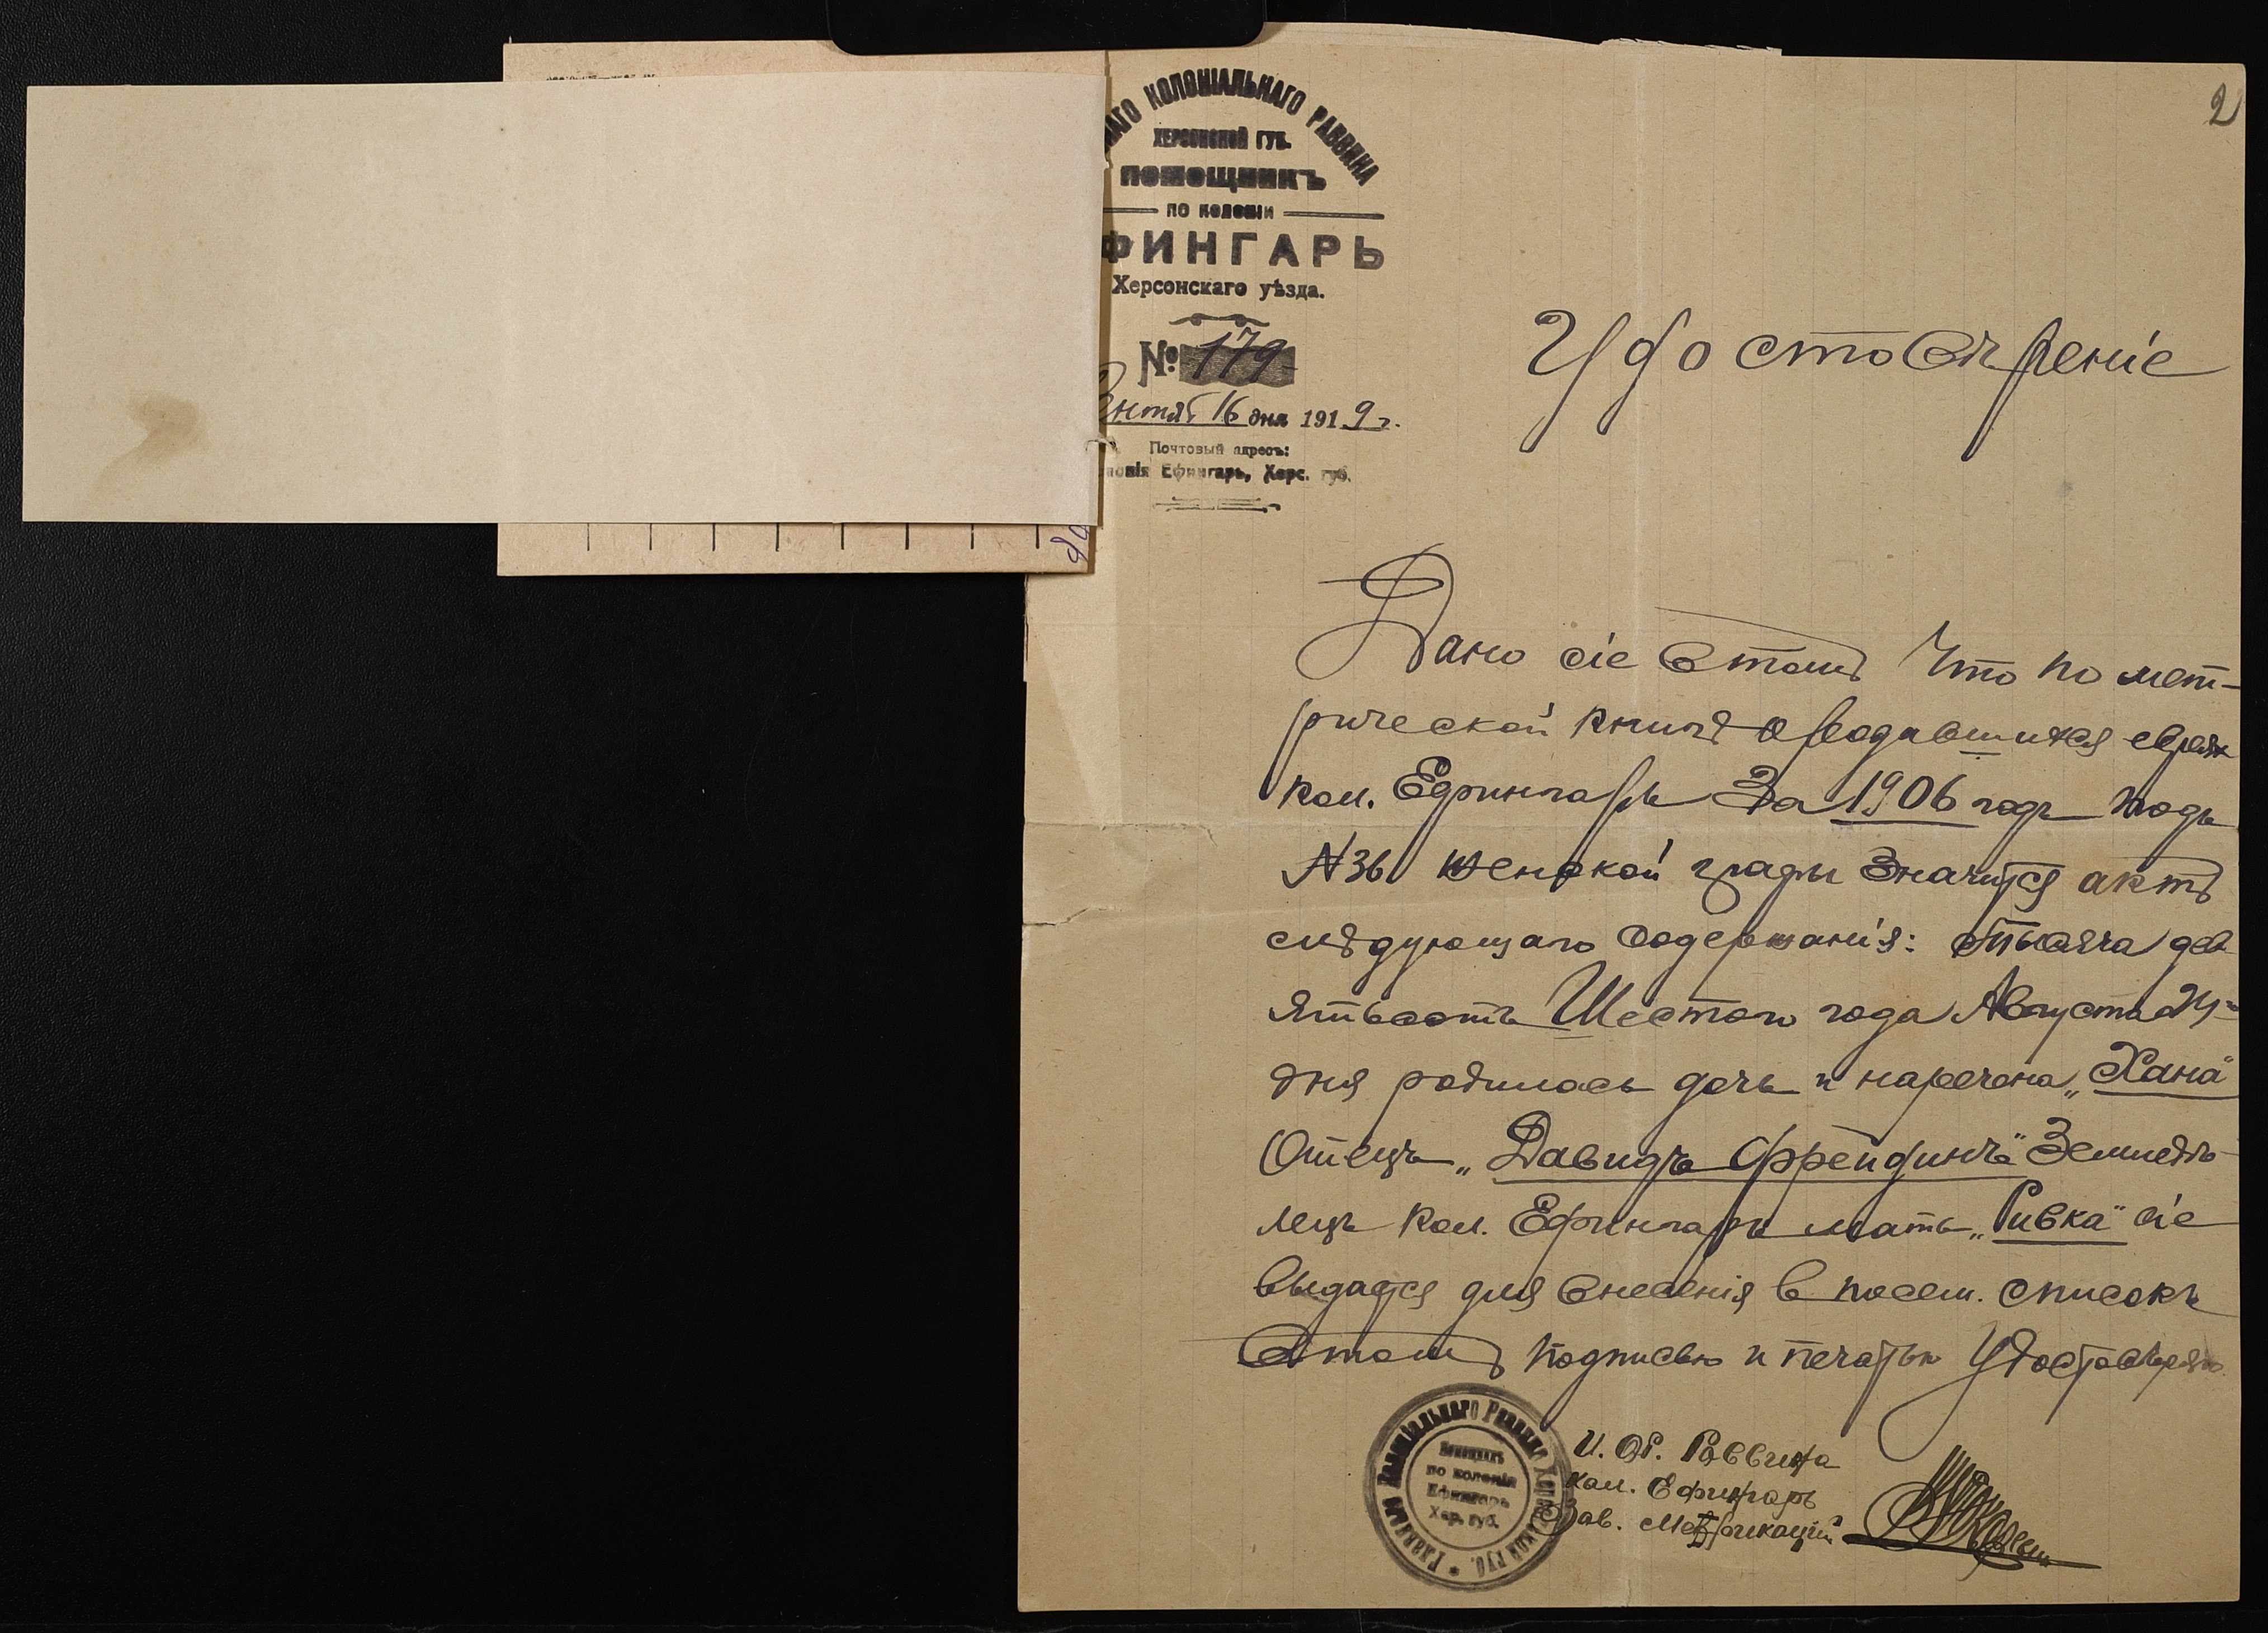 2
КОЛОНІАЛЬНАГО РАВВИНА
ХЕРСОНСКОЙ ГУБ.
ПОМОЩНИКЪ
ПО КОЛОНІИ
ФИНГАРЬ
Херсонскаго уѣзда.
№ 179
16 дня 1919 г.
Почтовый адресъ:
Ефингарь, Херс. губ.
Удостовѣреніе
Дано сіе в томъ что по мет-
рической книгѣ о родившихся евреях
кол. Ефингарь За 1906 годъ подъ
№36 женской графы Значится актъ
слѣдующаго содержанія: тысяча дев
ятьсотъ Шестого года Августа 24
дня родилась дочь и наречена „Хана"
Отецъ „Давидъ Фрейдинъ" Земледѣ-
лецъ Кол. Ефингарь мать „Ривка" сіе
выдается для внесенія в посем. списокъ
в томъ подписью и печатью Удостовѣряю
И. Об. Раввина
кол. Ефингарь
Зав. Метрикаціи
Главнаго Колоніальнаго Раввина Херсонской губ.
Помощникъ
по колоніи
Ефингарь
Хер. губ.